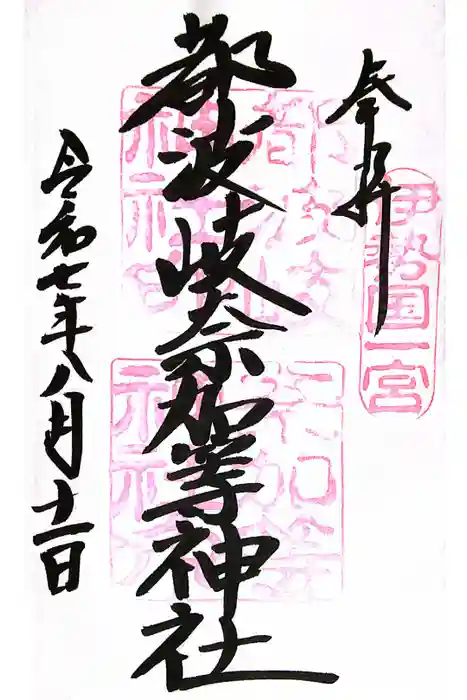 奉拝
伊勢国一宮
都波岐奈加等神社
令和七年八月十一日